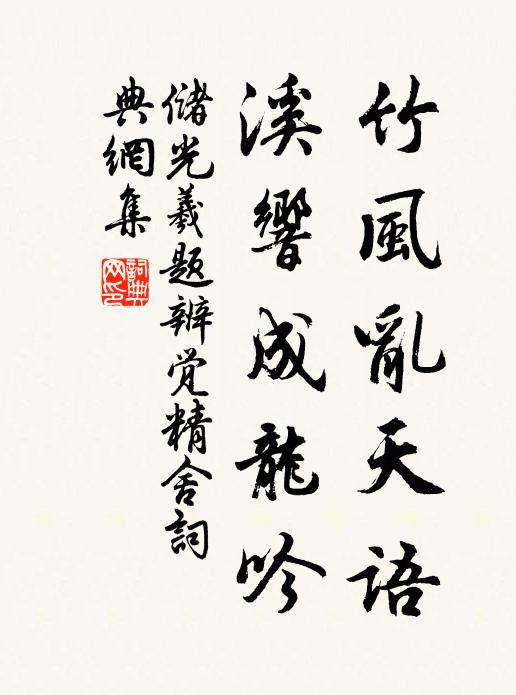 竹風亂天語
溪響成龍吟
儲光羲題辨覺精舍詞
典網集
詞典網印